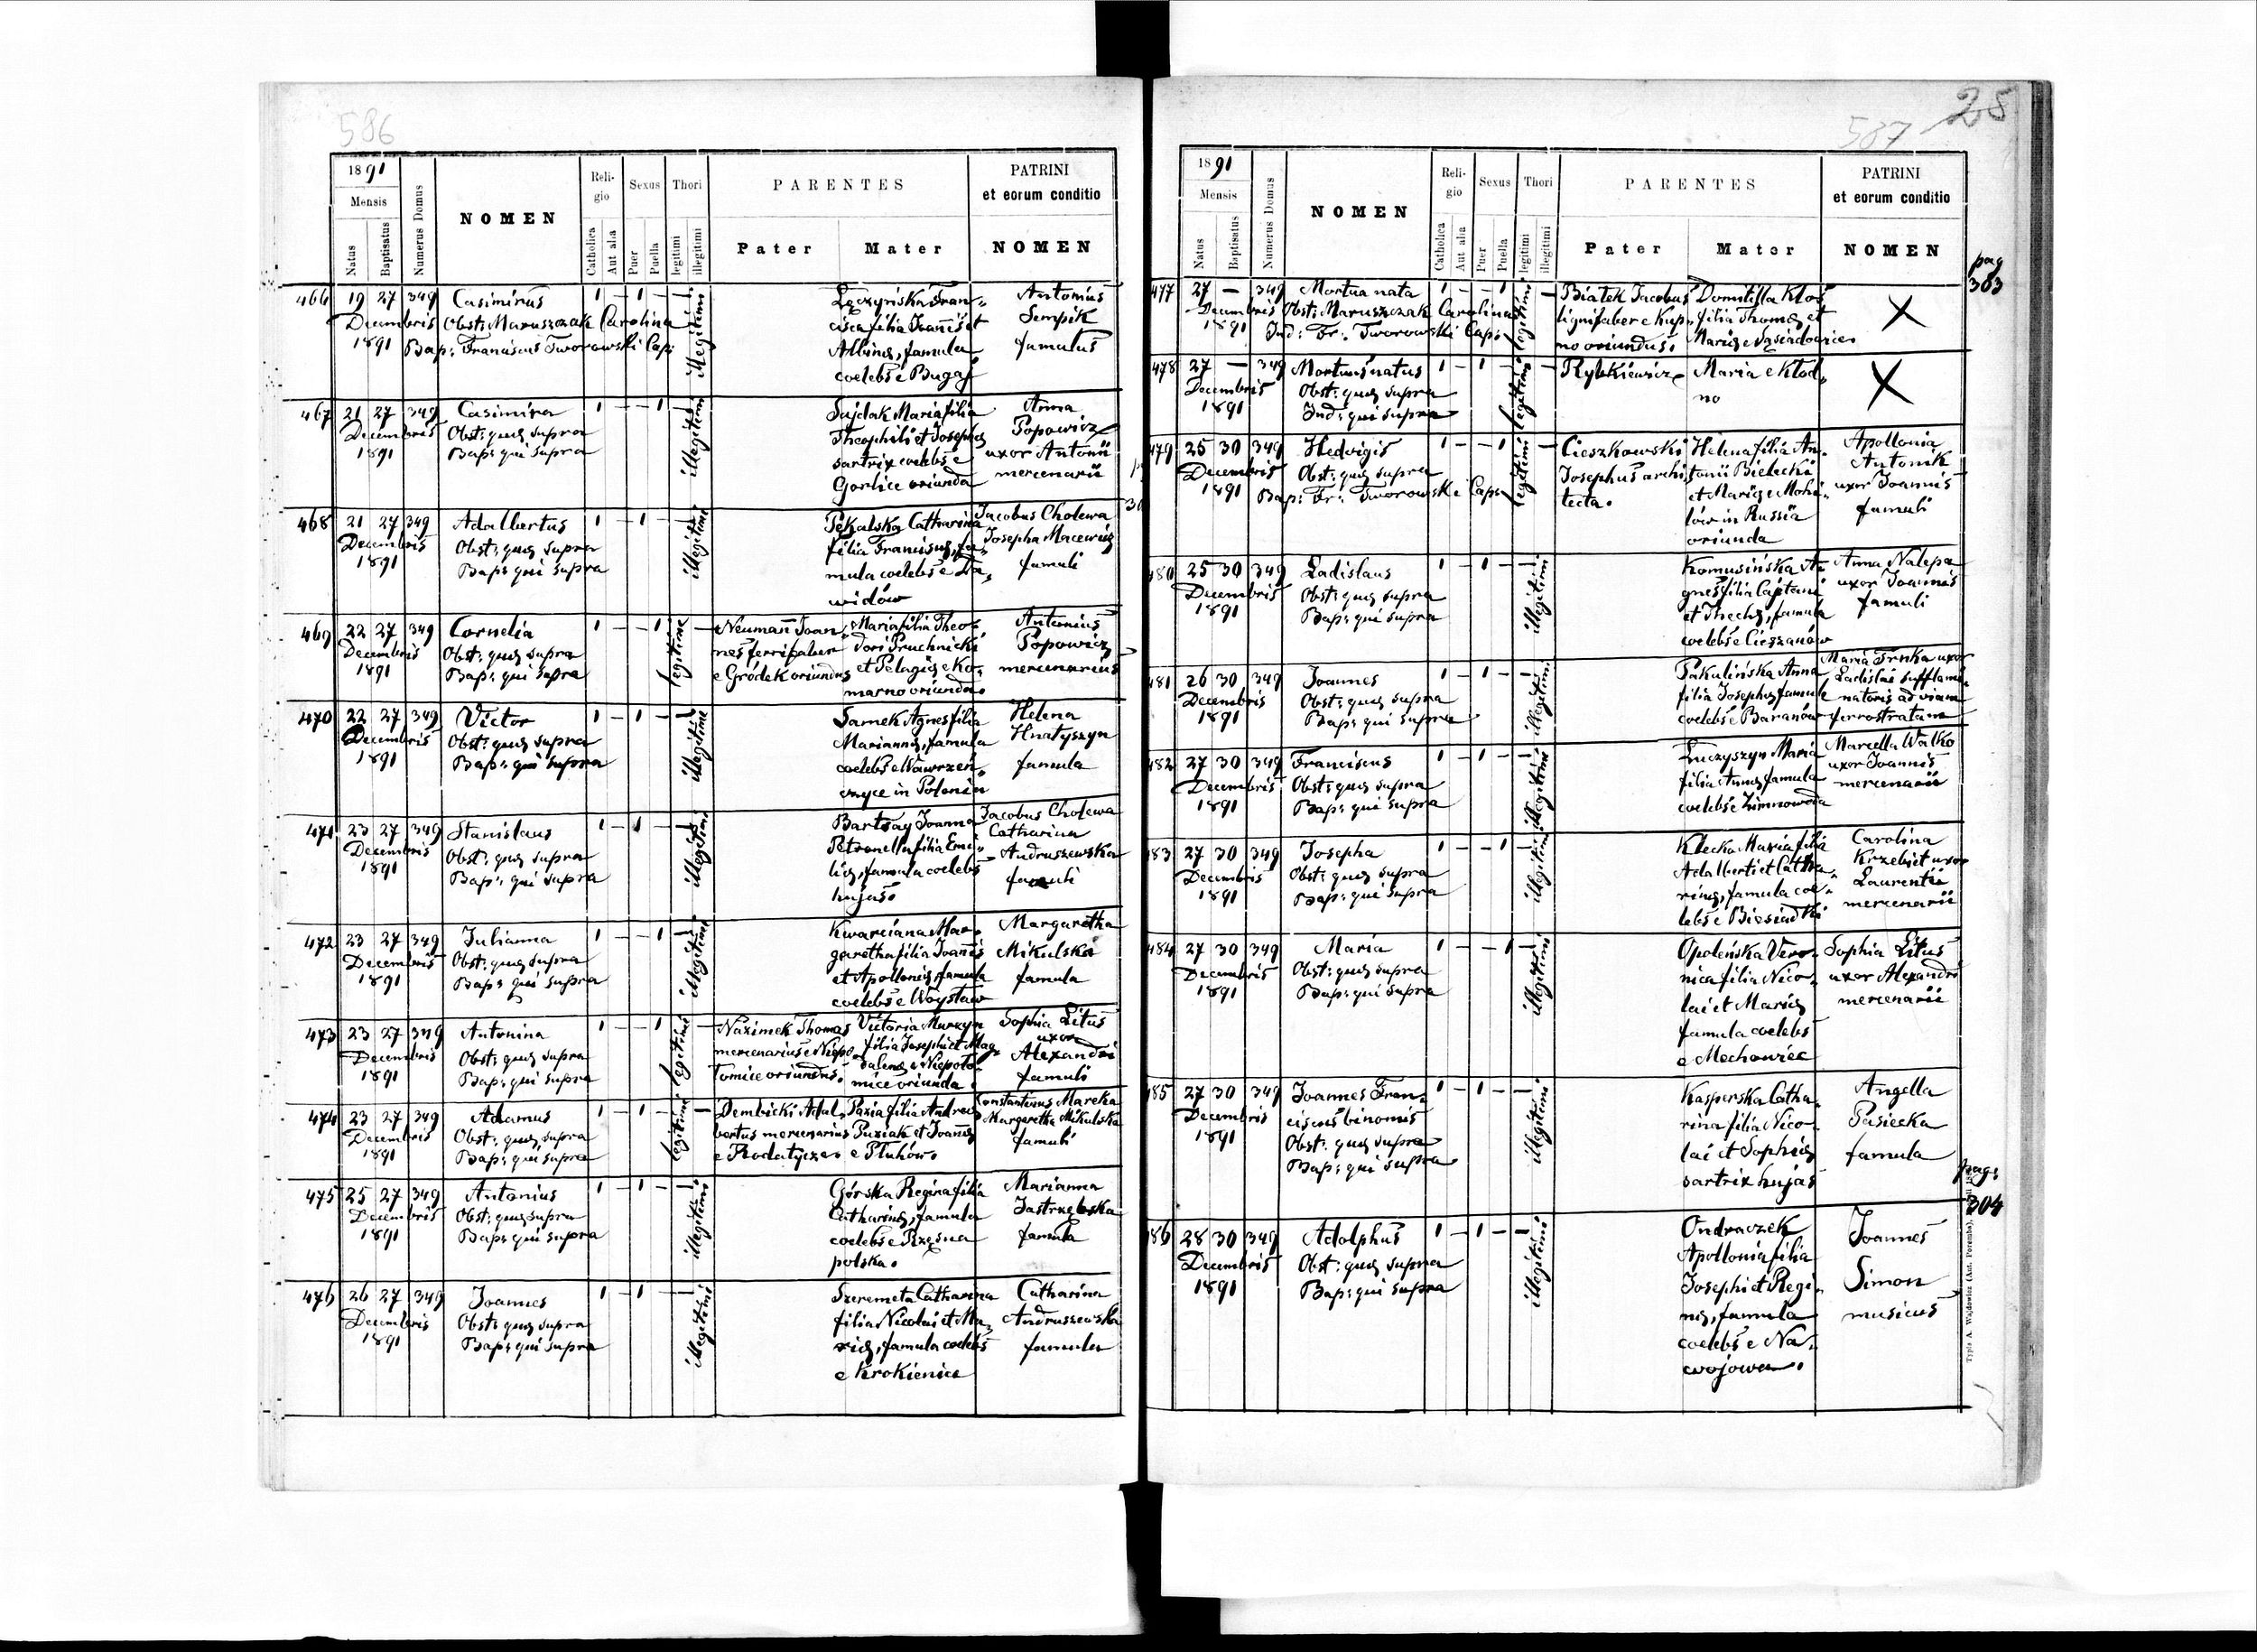 586
1891
Mensis
Natus
Baptisatus
Numerus Domus
NOMEN
Religio
Catholica
Aut alia
Sexus
Puer
Puella
Thori
legitimi
illegitimi
PARENTES
Pater
Mater
PATRINI
et eorum conditio
NOMEN
466 19 27 349 Casimirus 1 – 1 – – 1
Decembris 1891
Obst: Maruszczak Carolina
Bap: Franciscus Tworowski Cap:
illegitimi
Łęczyńska Fran-
cisca filia Joannis et
Albinę, famula
coelebs e Bugaj
Antonius
Sempik
famulus
467 21 27 349 Casimira 1 – – 1
Decembris 1891
Obst: quę supra
Bap: qui supra
illegitimi
Sajdak Maria filia
Theophili et Josephę
sartrix coelebs e
Gorlice oriunda
Anna
Popowicz
uxor Antonii
mercenarii
468 21 27 349 Adalbertus 1 – 1 – – 1
Decembris 1891
Obst: quę supra
Bap: qui supra
illegitimi
Pękalska Catharina
filia Francisci, fa-
mula coelebs e Da-
widów
Jacobus Cholewa
Josepha Macewicz
famuli
469 22 27 349 Cornelia 1 – – 1
Decembris 1891
Obst: quę supra
Bap: qui supra
legitimi
Neumann Joan-
nes ferrifaber
e Gródek oriundus
Maria filia Theo-
dori Pruchnicki
et Pelagię e Ko-
marno oriunda.
Antonius
Popowicz
mercenarius
470 22 27 349 Victor 1 – 1 – – 1
Decembris 1891
Obst: quę supra
Bap: qui supra
illegitimi
Samek Agnes filia
Mariannę, famula
coelebs e Wawrzeń-
czyce in Polonia
Helena
Hnatyszyn
famula
471 23 27 349 Stanislaus 1 – 1 – – 1
Decembris 1891
Obst: quę supra
Bap: qui supra
illegitimi
Joanna
Petronella filia Emi-
lię, famula coelebs
hujas.
Jacobus Cholewa
Catharina
Andruszewska
famuli
472 23 27 349 Julianna 1 – – 1 – 1
Decembris 1891
Obst: quę supra
Bap: qui supra
illegitimi
Kwarciana Mar-
garetha filia Joannis
et Apollonię, famula
coelebs e Woysław
Margaretha
Mikulska
famula
473 23 27 349 Antonina 1 – – 1
Decembris 1891
Obst: quę supra
Bap: qui supra
legitimi
Nazimek Thomas
mercenarius e Niepo-
łomice oriundus.
Victoria Murzyn
filia Josephi et Mag-
dalenę e Niepoło-
mice oriunda
Sophia Litus
uxor
Alexandri
famuli
474 23 27 349 Adamus 1 – 1 –
Decembris 1891
Obst: quę supra
Bap: qui supra
legitimi
Dembicki Adal-
bertus mercenarius
e Rodatycze.
Paxia filia Andreę
Puziak et Joannę
e Płuhów.
Constantinus Mareka
Margaretha Mikulska
famuli
475 25 27 349 Antonius 1 – 1 – – 1
Decembris 1891
Obst: quę supra
Bap: qui supra
illegitimi
Górska Regina filia
Catharinę, famula
coelebs e Rzęsna
polska.
Marianna
Jastrzębska
famula
476 26 27 349 Joannes 1 – 1 – – 1
Decembris 1891
Obst: quę supra
Bap: qui supra
illegitimi
Szeremeta Catharina
filia Nicolai et Ma-
rię, famula coelebs
e Krokienica
Catharina
Andruszewska
famula
587 25
1891
Mensis
Natus
Baptisatus
Numerus Domus
NOMEN
Religio
Catholica
Aut alia
Sexus
Puer
Puella
Thori
legitimi
illegitimi
PARENTES
Pater
Mater
PATRINI
et eorum conditio
NOMEN
pag
303
477 27 — 349 Mortua nata 1 – – 1
Decembris 1891
Obst: Maruszczak Carolina
Ind: Fr: Tworowski Cap:
legitimi
Białek Jacobus
lignifaber e Kup-
no oriundus.
Domitilla Kłos
filia Thomę et
Marię e Sąsiadowice.
X
478 27 — 349 Mortuus natus 1 – 1 –
Decembris 1891
Obst: quę supra
Ind: qui supra
legitimi
Rybkiewicz
Maria e Kłod-
no
X
479 25 30 349 Hedvigis 1 – – 1 –
Decembris 1891
Obst: quę supra
Bap: Fr: Tworowski Cap:
legitimi
Cieszkowski
Josephus archi-
tecta.
Helena filia An-
tonii Bielecki
et Marię e Mohi-
lów in Russia
oriunda
Apollonia
Antonik
uxor Joannis
famuli
480 25 30 349 Ladislaus 1 – 1 – – 1
Decembris 1891
Obst: quę supra
Bap: qui supra
illegitimi
Komusińska A-
gnes filia Cajetani
et Theclę, famula
coelebs e Cieszanów
Anna Nalepa
uxor Joannis
famuli
481 26 30 349 Joannes 1 – 1 – – 1
Decembris 1891
Obst: quę supra
Bap: qui supra
illegitimi
Pakulińska Anna
filia Josephę famula
coelebs e Baranów
Maria Trnka uxor
Ladislai sufflami-
natoris ad viam
ferrostratam
482 27 30 349 Franciscus 1 – 1 – – 1
Decembris 1891
Obst: quę supra
Bap: qui supra
illegitimi
Łuczyszyn Maria
filia Annę famula
coelebs e Zimnowoda
Marcella Walko
uxor Joannis
mercenarii
483 27 30 349 Josepha 1 – – 1 – 1
Decembris 1891
Obst: quę supra
Bap: qui supra
illegitimi
Klecka Maria filia
Adalberti et Catha-
rinę, famula coe-
lebs e Biesiadki
Carolina
Krzebiet uxor
Laurentii
mercenarii
484 27 30 349 Maria 1 – – 1 – 1
Decembris 1891
Obst: quę supra
Bap: qui supra
illegitimi
Opoleńska Vero-
nica filia Nico-
lai et Marię
famula coelebs
e Mechowiec
Sophia Litus
uxor Alexandri
mercenarii
485 27 30 349 Joannes Fran-
ciscus binomis
Decembris 1891
Obst: quę supra
Bap: qui supra
1 – 1 – – 1
illegitimi
Kasperska Catha-
rina filia Nico-
lai et Sophię
sartrix hujas
Angella
Pasiecka
famula
pag:
304
486 28 30 349 Adolphus 1 – 1 – – 1
Decembris 1891
Obst: quę supra
Bap: qui supra
illegitimi
Ondraczek
Apollonia filia
Josephi et Regi-
nę, famula
coelebs e Na-
wojowa.
Joannes
Simon
musicus